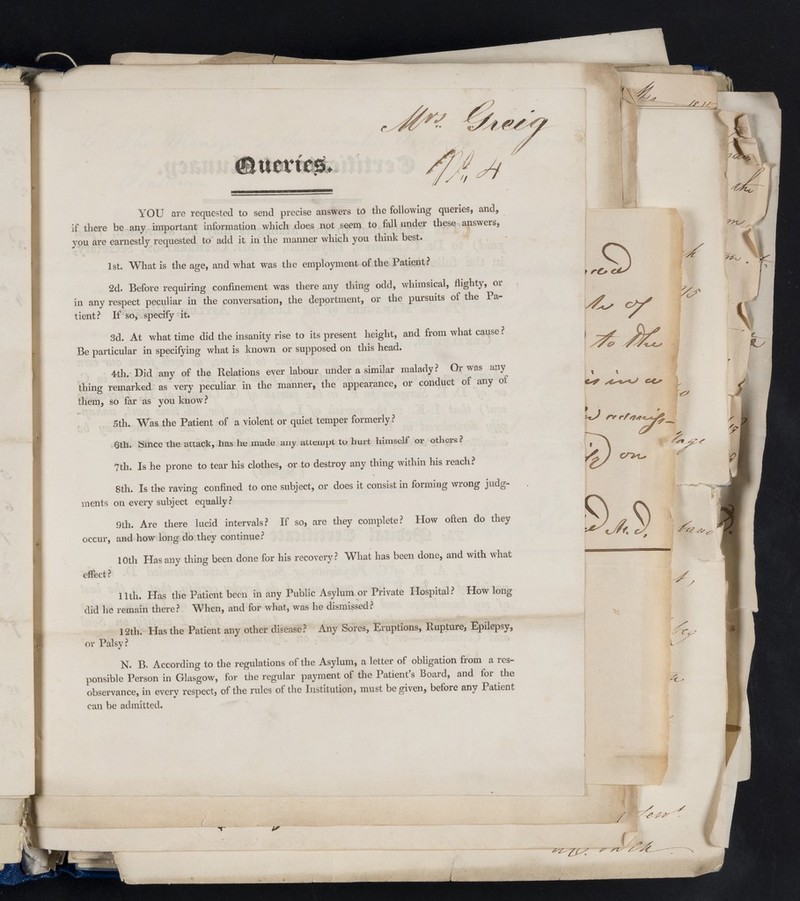 Mrs. Greig
No. 4
Queries.
YOU are requested to send precise answers to the following queries, and,
if there be any important information which does not seem to fall under these answers,
you are earnestly requested to add it in the manner which you think best.
1st. What is the age, and what was the employment of the Patient?
2d. Before requiring confinement was there any thing odd, whimsical, flighty, or
in any respect peculiar in the conversation, the deportment, or the pursuits of the Pa-
tient? If so, specify it.
3d. At what time did the insanity rise to its present height, and from what cause?
Be particular in specifying what is known or supposed on this head.
4th. Did any of the Relations ever labour under a similar malady? Or was any
thing remarked as very peculiar in the manner, the appearance, or conduct of any of
them, so far as you know?
5th. Was the Patient of a violent or quiet temper formerly?
6th. Since the attack, has he made any attempt to hurt himself or others?
7th. Is he prone to tear his clothes, or to destroy any thing within his reach?
8th. Is the raving confined to one subject, or does it consist in forming wrong judg-
ments on every subject equally?
9th. Are there lucid intervals? If so, are they complete? How often do they
occur, and how long do they continue?
10th Has any thing been done for his recovery? What has been done, and with what
effect?
11th. Has the Patient been in any Public Asylum or Private Hospital? How long
did he remain there? When, and for what, was he dismissed?
12th. Has the Patient any other disease? Any Sores, Eruptions, Rupture, Epilepsy,
or Palsy?
N. B. According to the regulations of the Asylum, a letter of obligation from a res-
ponsible Person in Glasgow, for the regular payment of the Patient's Board, and for the
observance, in every respect, of the rules of the Institution, must be given, before any Patient
can be admitted.
of
to the
on